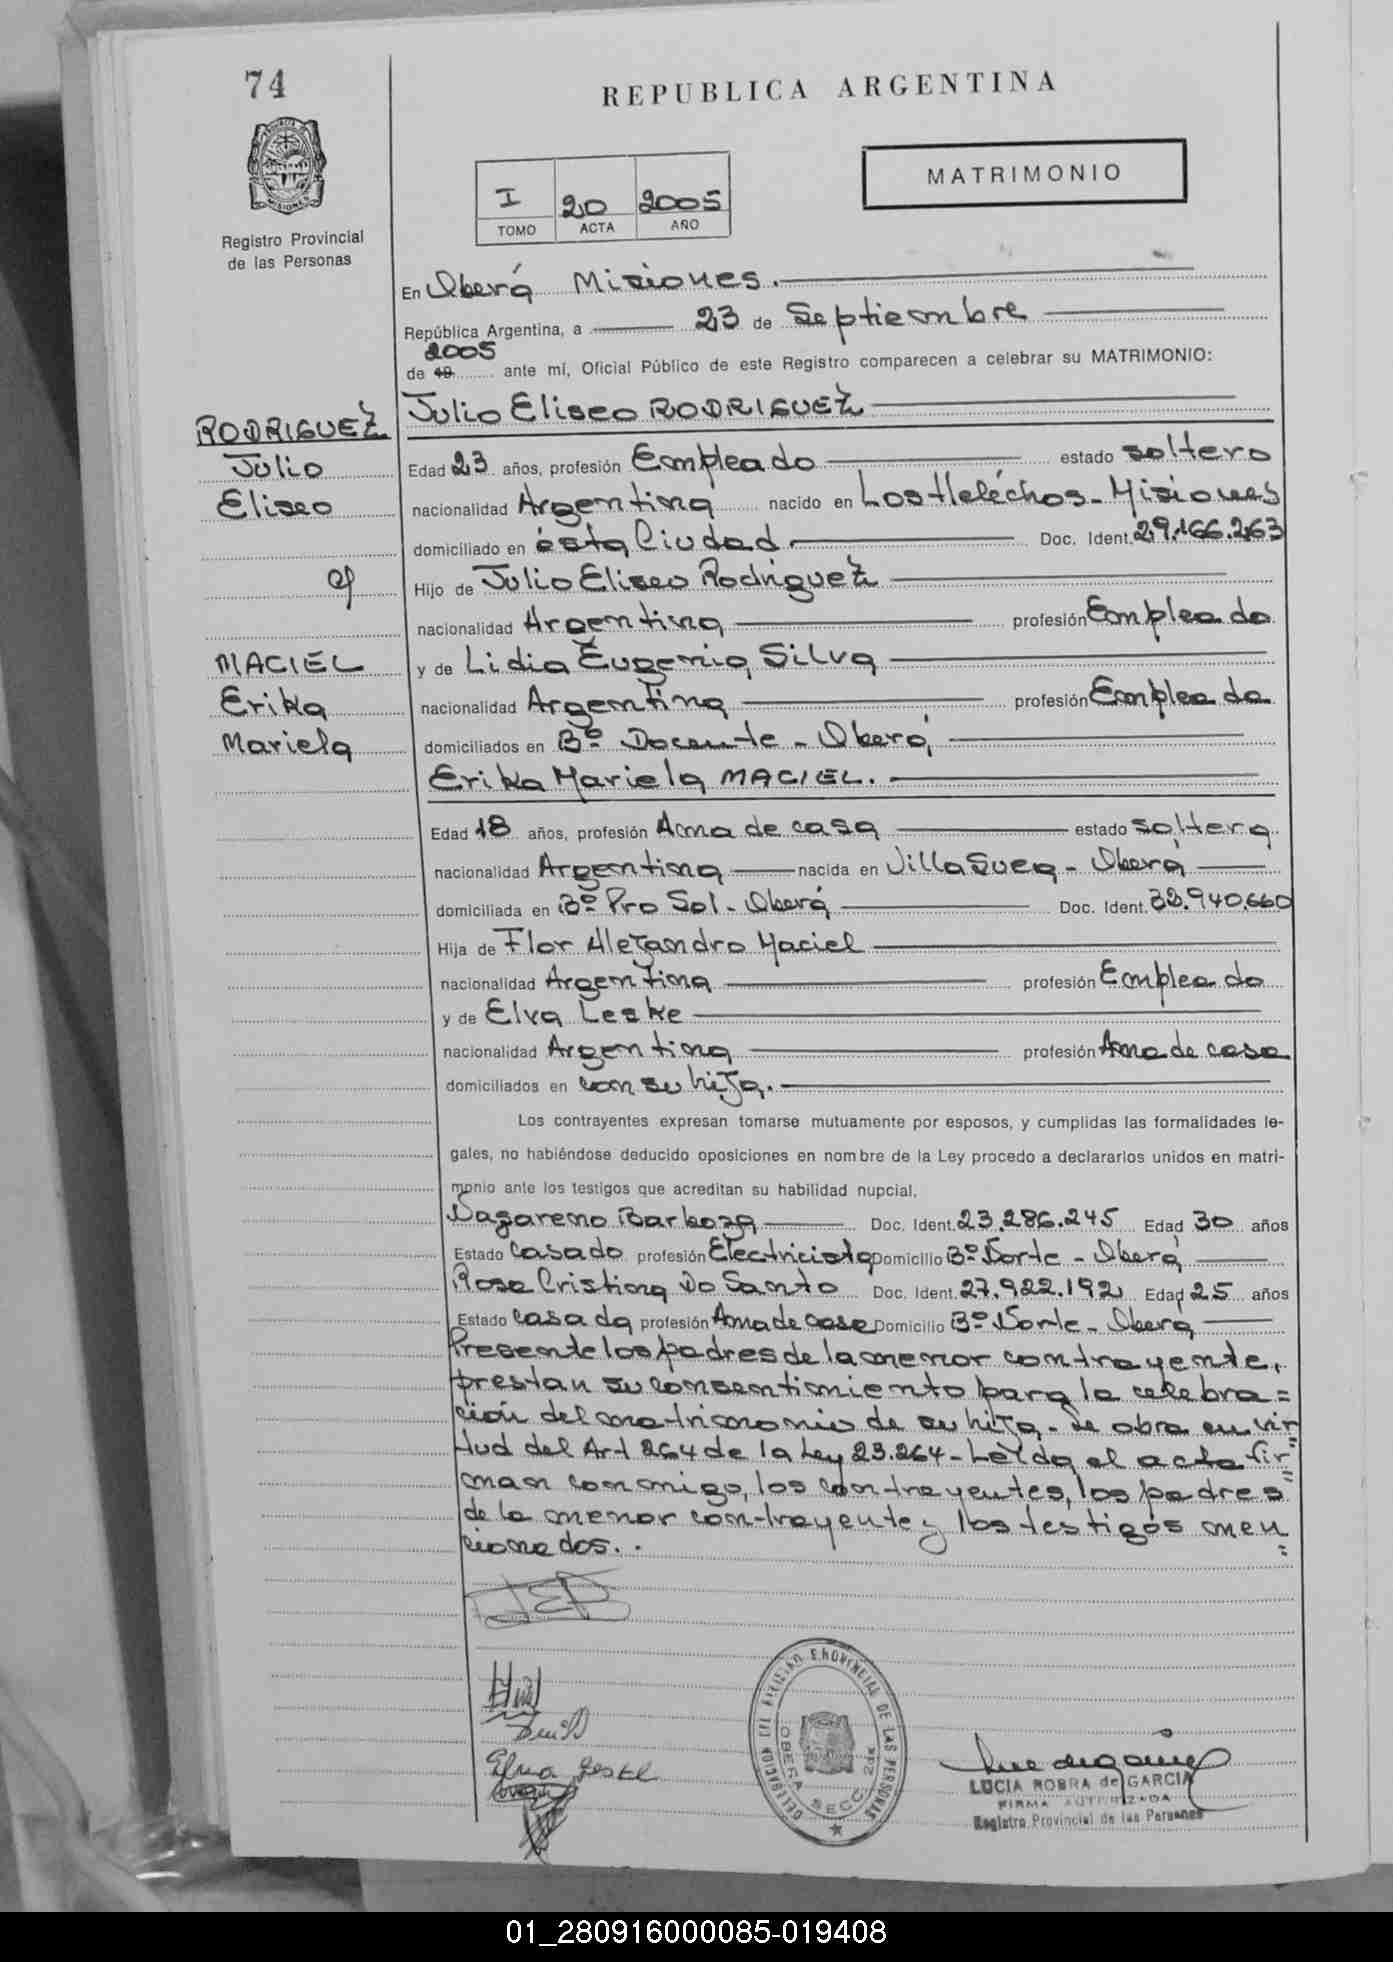 74
REPUBLICA ARGENTINA
MATRIMONIO
I 20 2005
TOMO ACTA AÑO
Registro Provincial
de las Personas
En Oberá Misiones.
República Argentina, a 23 de Septiembre
2005
de 19 ante mí, Oficial Público de este Registro comparecen a celebrar su MATRIMONIO:
RODRIGUEZ
Julio
Eliseo
c/
MACIEL
Erika
Mariela
Julio Eliseo RODRIGUEZ
Edad 23 años, profesión Empleado estado soltero
nacionalidad Argentina nacido en Los Helechos - Misiones
domiciliado en ésta Ciudad Doc. Ident. 29.166.263
Hijo de Julio Eliseo Rodriguez
nacionalidad Argentina profesión Empleado
y de Lidia Eugenia Silva
nacionalidad Argentina profesión Empleada
domiciliados en Bº Docente - Oberá
Erika Mariela MACIEL.
Edad 18 años, profesión Ama de casa estado soltera
nacionalidad Argentina nacida en Villa Svea - Oberá
domiciliada en Bº Pro Sol - Oberá Doc. Ident. 32.940.660
Hija de Flor Alejandro Maciel
nacionalidad Argentina profesión Empleado
y de Elva Leske
nacionalidad Argentina profesión Ama de casa
domiciliados en con su hija.
Los contrayentes expresan tomarse mutuamente por esposos, y cumplidas las formalidades le-
gales, no habiéndose deducido oposiciones en nombre de la Ley procedo a declararlos unidos en matri-
monio ante los testigos que acreditan su habilidad nupcial,
Nazareno Barboza Doc. Ident. 23.286.245 Edad 30 años
Estado casado profesión Electricista Domicilio Bº Norte - Oberá
Rosa Cristina Do Santo Doc. Ident. 27.922.192 Edad 25 años
Estado casada profesión Ama de casa Domicilio Bº Norte - Oberá
Presente los padres de la menor contrayente,
prestan su consentimiento para la celebra=
ción del matrimonio de su hija - Se obra en vir=
tud del Art 264 de la Ley 23.264 - Leída el acta fir=
man conmigo, los contrayentes, los padres
de la menor contrayente y los testigos men=
cionados..
Elva Leske
DELEGACION DEL REGISTRO PROVINCIAL DE LAS PERSONAS
OBERA SECC. 2da
LUCIA ROBRA de GARCIA
FIRMA AUTORIZADA
Registro Provincial de las Personas
01_280916000085-019408